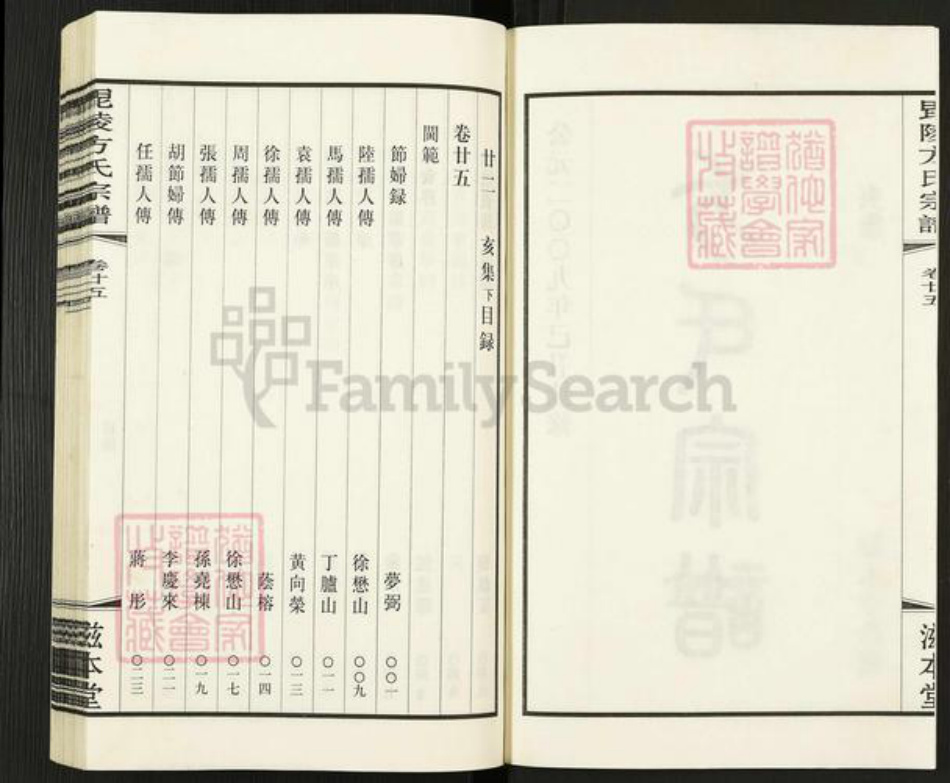 毘陵方氏宗譜
卷廿五
滋本堂
廿二
亥集下目録
卷廿五
閫範
節婦録 夢弼 〇〇一
陸孺人傳 徐懋山 〇〇九
馬孺人傳 丁臚山 〇一一
袁孺人傳 黃向榮 〇一三
徐孺人傳 蔭榕 〇一四
周孺人傳 徐懋山 〇一七
張孺人傳 孫堯棟 〇一九
胡節婦傳 李慶來 〇二一
任孺人傳 蔣彤 〇二三
毘陵方氏宗譜
卷廿五
滋本堂
FamilySearch